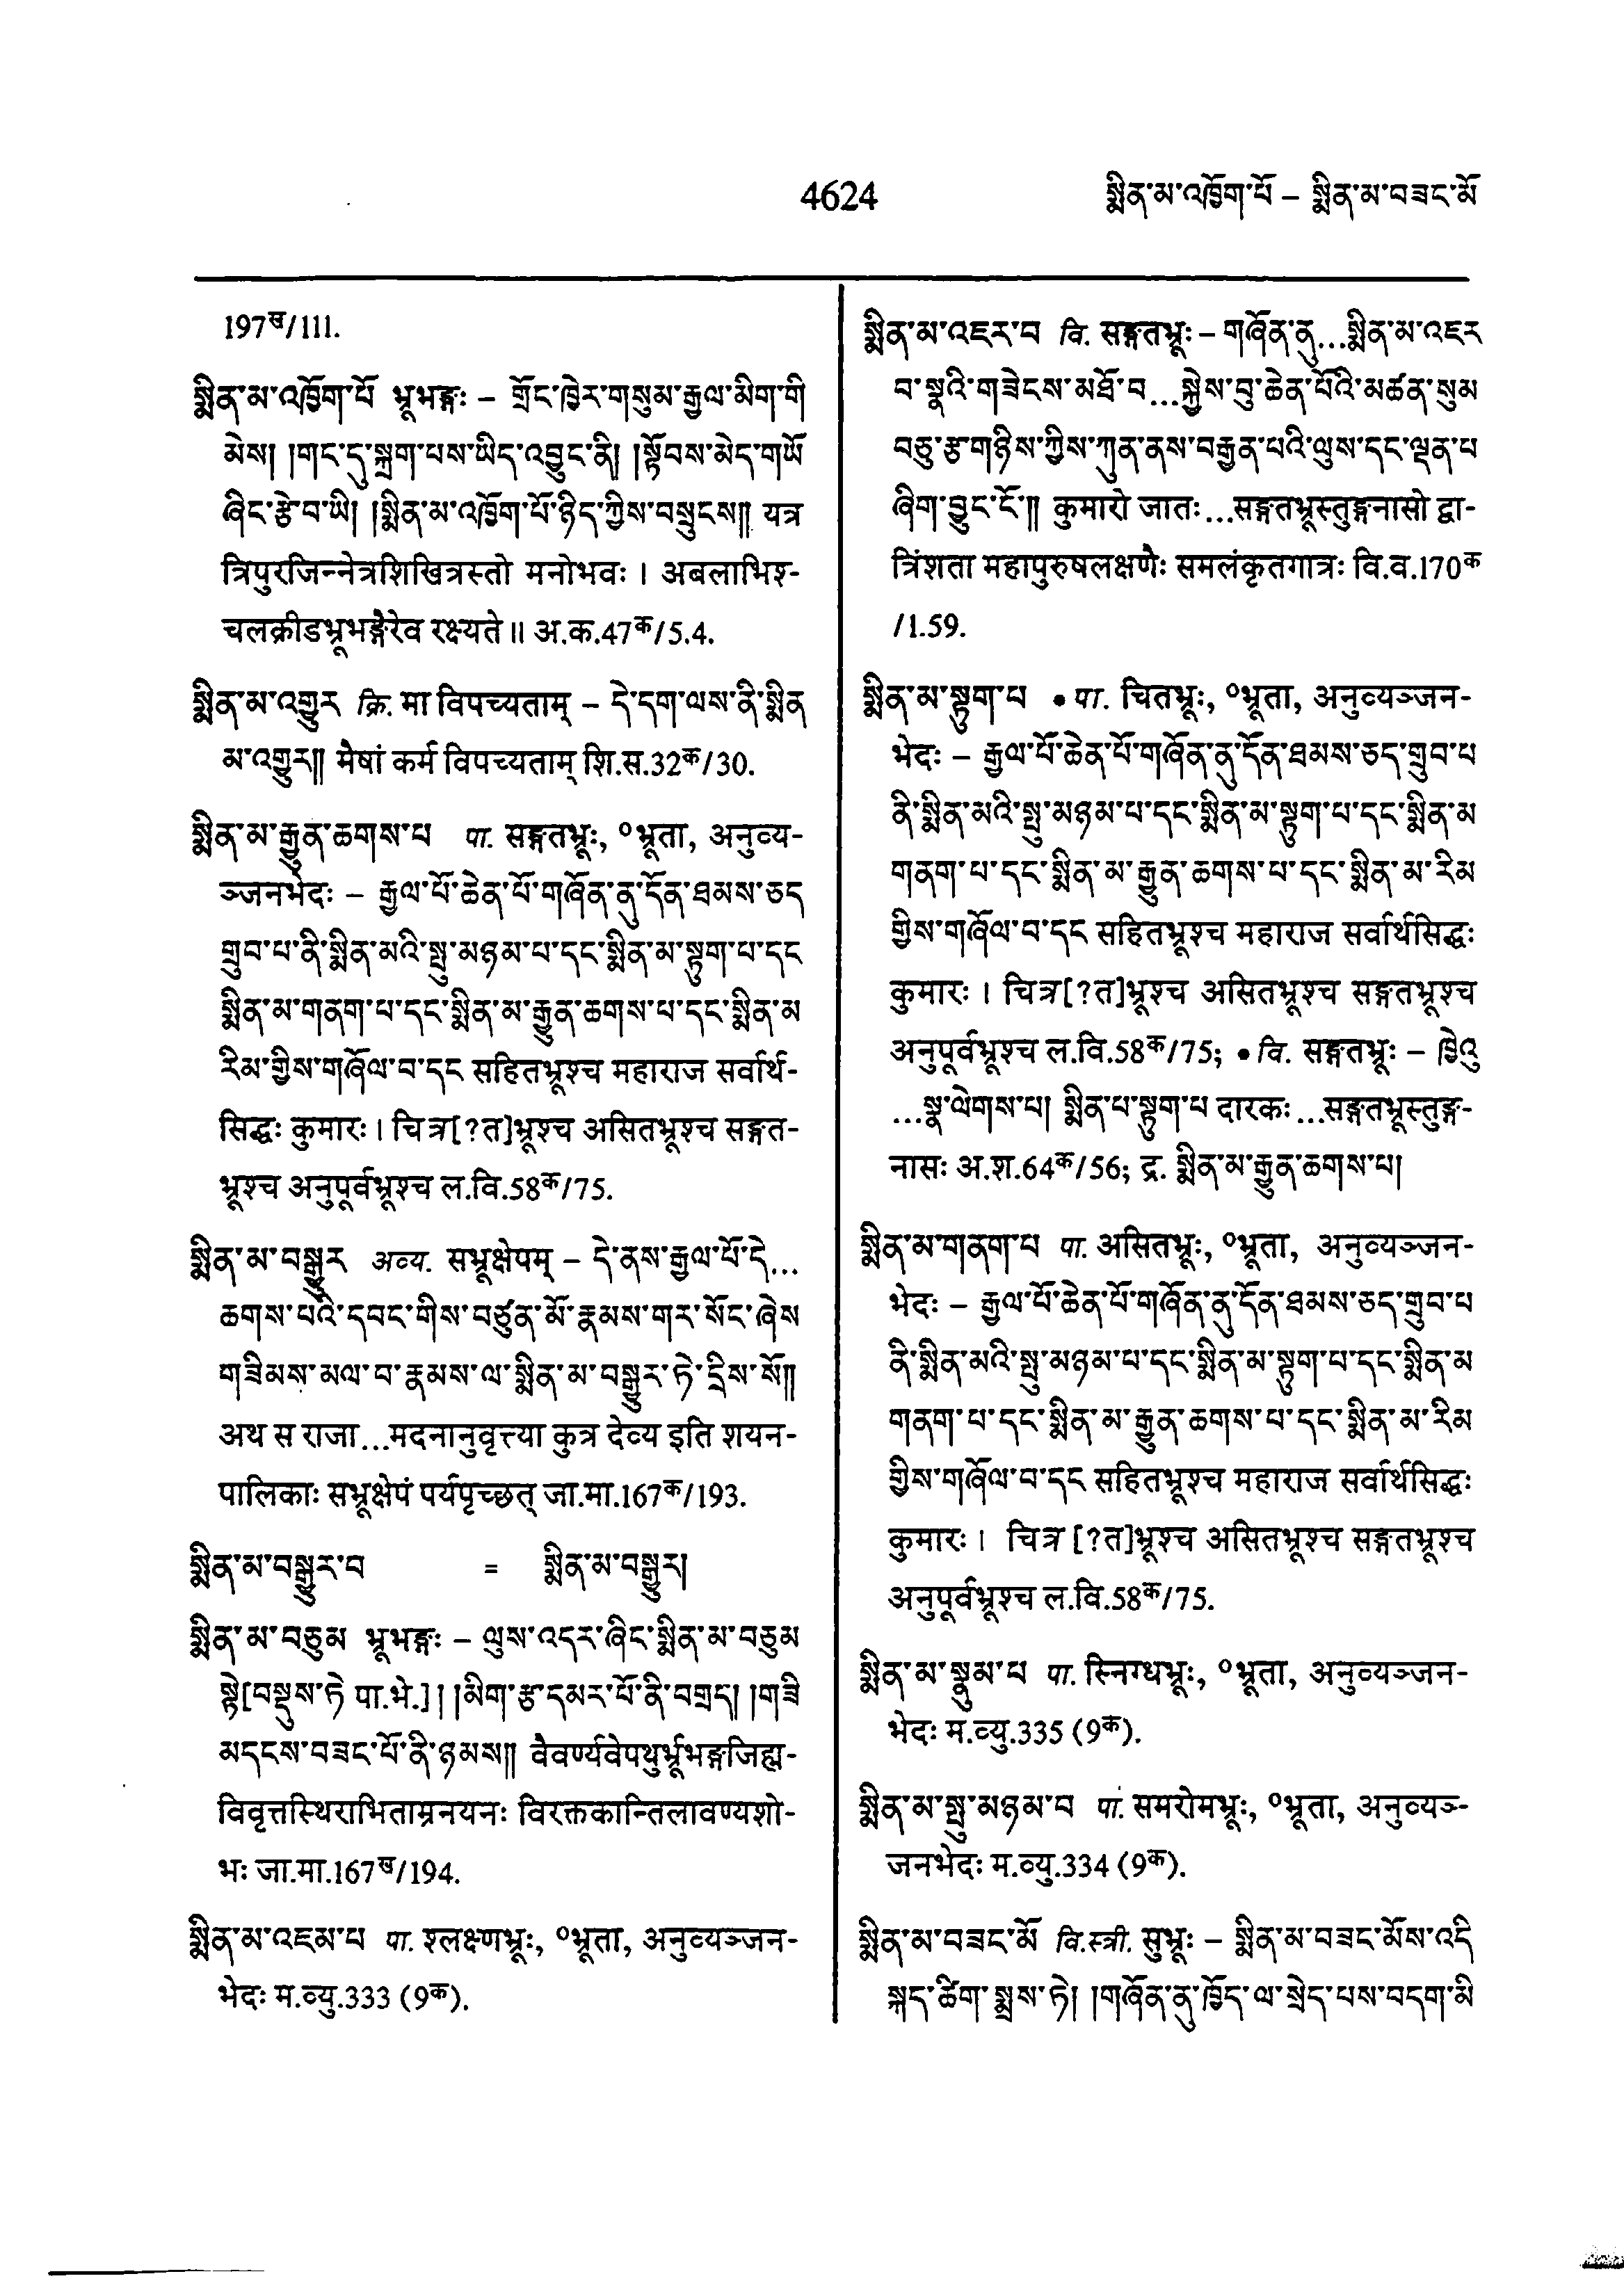 4624
སྨིན་མ་འཁྱོག་པོ – སྨིན་མ་བཟང་མོ
197ख/111.
སྨིན་མ་འཁྱོག་པོ भ्रूभङ्गः – གྲོང་ཁྱེར་གསུམ་རྒྱལ་མིག་གི
མེས། །གང་དུ་སྐྲག་པས་ཡིད་འབྱུང་ནི། །སྟོབས་མེད་གཡོ
ཞིང་རྩེ་བ་ཡི། །སྨིན་མ་འཁྱོག་པོ་ཉིད་ཀྱིས་བསྲུངས།། यत्र
त्रिपुरजिन्नेत्रशिखित्रस्तो मनोभवः । अबलाभिश्-
चलक्रीडभ्रूभङ्गैरेव रक्ष्यते ॥ अ.क.47क/5.4.
སྨིན་མ་འགྱུར क्रि. मा विपच्यताम् – དེ་དག་ལས་ནི་སྨིན
མ་འགྱུར།། मैषां कर्म विपच्यताम् शि.स.32क/30.
སྨིན་མ་རྒྱུན་ཆགས་པ पा. सङ्गतभ्रूः, ०भ्रूता, अनुव्य-
ञ्जनभेदः – རྒྱལ་པོ་ཆེན་པོ་གཞོན་ནུ་དོན་ཐམས་ཅད
གྲུབ་པ་ནི་སྨིན་མའི་སྤུ་མཉམ་པ་དང་སྨིན་མ་སྟུག་པ་དང
སྨིན་མ་གནག་པ་དང་སྨིན་མ་རྒྱུན་ཆགས་པ་དང་སྨིན་མ
རིམ་གྱིས་གཞོལ་བ་དང सहितभ्रूश्च महाराज सर्वार्थ-
सिद्धः कुमारः । चित्र[?त]भ्रूश्च असितभ्रूश्च सङ्गत-
भ्रूश्च अनुपूर्वभ्रूश्च ल.वि.58क/75.
སྨིན་མ་བསྒྱུར अव्य. सभ्रूक्षेपम् – དེ་ནས་རྒྱལ་པོ་དེ...
ཆགས་པའི་དབང་གིས་བཙུན་མོ་རྣམས་གར་སོང་ཞེས
གཟིམས་མལ་བ་རྣམས་ལ་སྨིན་མ་བསྒྱུར་ཏེ་དྲིས་སོ།།
अथ स राजा...मदनानुवृत्त्या कुत्र देव्य इति शयन-
पालिकाः सभ्रूक्षेपं पर्यपृच्छत् जा.मा.167क/193.
སྨིན་མ་བསྒྱུར་བ = སྨིན་མ་བསྒྱུར།
སྨིན་མ་བཅུམ भ्रूभङ्गः – ལུས་འདར་ཞིང་སྨིན་མ་བཅུམ
སྟེ[བསྡུས་ཏེ पा.भे.]། །མིག་རྩ་དམར་པོ་ནི་བགྲད། །གཟི
མདངས་བཟང་པོ་ནི་ཉམས།། वैवर्ण्यवेपथुर्भ्रूभङ्गजिह्म-
विवृत्तस्थिराभिताम्रनयनः विरक्तकान्तिलावण्यशो-
भः जा.मा.167ख/194.
སྨིན་མ་འཇམ་པ पा. श्लक्ष्णभ्रूः, ०भ्रूता, अनुव्यञ्जन-
भेदः म.व्यु.333 (9क).
སྨིན་མ་འཇར་བ वि. सङ्गतभ्रूः – གཞོན་ནུ...སྨིན་མ་འཇར
བ་སྣའི་གཟེངས་མཐོ་བ...སྐྱེས་བུ་ཆེན་པོའི་མཚན་སུམ
བཅུ་རྩ་གཉིས་ཀྱིས་ཀུན་ནས་བརྒྱན་པའི་ལུས་དང་ལྡན་པ
ཞིག་བྱུང་ངོ་།། कुमारो जातः...सङ्गतभ्रूस्तुङ्गनासो द्वा-
त्रिंशता महापुरुषलक्षणैः समलंकृतगात्रः वि.व.170क
/1.59.
སྨིན་མ་སྟུག་པ • पा. चितभ्रूः, ०भ्रूता, अनुव्यञ्जन-
भेदः – རྒྱལ་པོ་ཆེན་པོ་གཞོན་ནུ་དོན་ཐམས་ཅད་གྲུབ་པ
ནི་སྨིན་མའི་སྤུ་མཉམ་པ་དང་སྨིན་མ་སྟུག་པ་དང་སྨིན་མ
གནག་པ་དང་སྨིན་མ་རྒྱུན་ཆགས་པ་དང་སྨིན་མ་རིམ
གྱིས་གཞོལ་བ་དང सहितभ्रूश्च महाराज सर्वार्थसिद्धः
कुमारः । चित्र[?त]भ्रूश्च असितभ्रूश्च सङ्गतभ्रूश्च
अनुपूर्वभ्रूश्च ल.वि.58क/75; • वि. सङ्गतभ्रूः – ཁྱེའུ
...སྣ་ལེགས་པ། སྨིན་པ་སྟུག་པ दारकः...सङ्गतभ्रूस्तुङ्ग-
नासः अ.श.64क/56; द्र. སྨིན་མ་རྒྱུན་ཆགས་པ།
སྨིན་མ་གནག་པ पा. असितभ्रूः, ०भ्रूता, अनुव्यञ्जन-
भेदः – རྒྱལ་པོ་ཆེན་པོ་གཞོན་ནུ་དོན་ཐམས་ཅད་གྲུབ་པ
ནི་སྨིན་མའི་སྤུ་མཉམ་པ་དང་སྨིན་མ་སྟུག་པ་དང་སྨིན་མ
གནག་པ་དང་སྨིན་མ་རྒྱུན་ཆགས་པ་དང་སྨིན་མ་རིམ
གྱིས་གཞོལ་བ་དང सहितभ्रूश्च महाराज सर्वार्थसिद्धः
कुमारः । चित्र [?त]भ्रूश्च असितभ्रूश्च सङ्गतभ्रूश्च
अनुपूर्वभ्रूश्च ल.वि.58क/75.
སྨིན་མ་སྣུམ་པ पा. स्निग्धभ्रूः, ०भ्रूता, अनुव्यञ्जन-
भेदः म.व्यु.335 (9क).
སྨིན་མ་སྤུ་མཉམ་པ पा. समरोमभ्रूः, ०भ्रूता, अनुव्यञ्-
जनभेदः म.व्यु.334 (9क).
སྨིན་མ་བཟང་མོ वि.स्त्री. सुभ्रूः – སྨིན་མ་བཟང་མོས་འདི
སྐད་ཚིག་སྨྲས་ཏེ། །གཞོན་ནུ་ཁྱོད་ལ་སྲེད་པས་བདག་མི